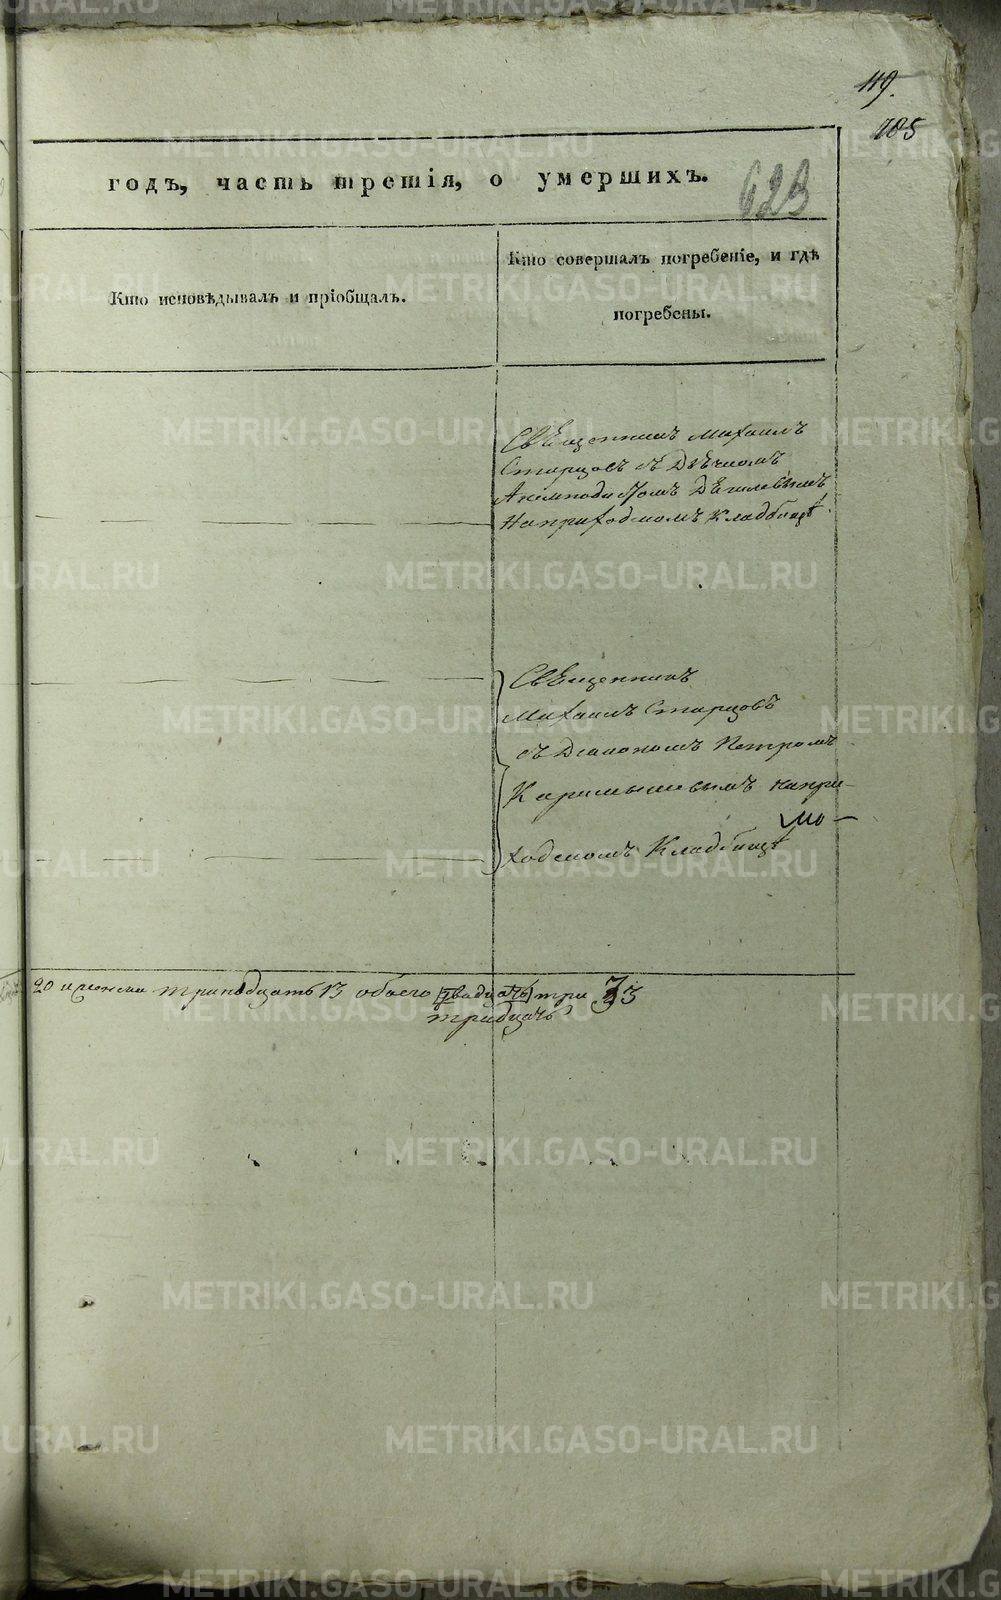 119.
105
годъ, часть третія, о умершихъ.
623
Кто исповѣдывалъ и пріобщалъ.
Кто совершалъ погребеніе, и гдѣ
погребены.
Священникъ Михаилъ
Старцовъ съ Дьячкомъ
На приходскомъ Кладбищѣ.
Священникъ
Михаилъ Старцовъ
съ Діакономъ Петромъ
на при-
ходскомъ Кладбищѣ
20 и женска тринадцать 13 обоего двадцать три 33
тридцать
METRIKI.GASO-URAL.RU